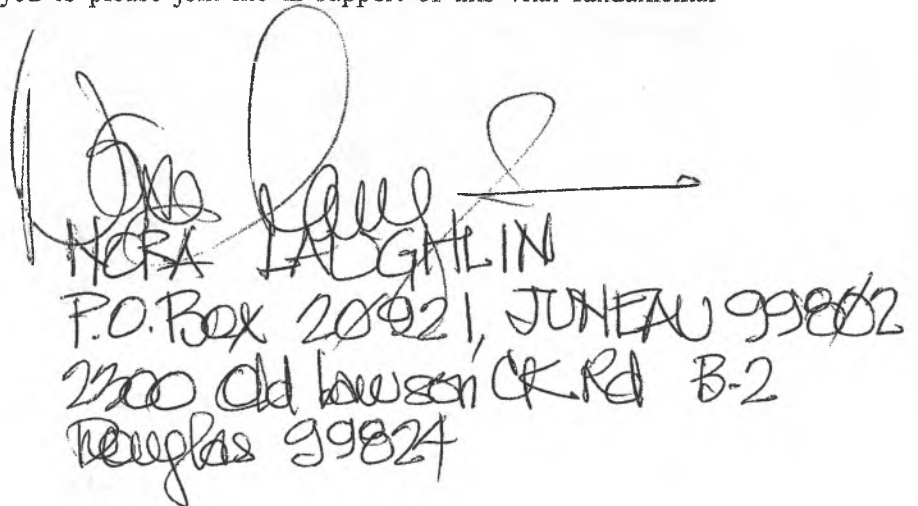 you to please join me in support of this vital fundamental
NORA LAUGHLIN
P.O. Box 20921, JUNEAU 99802
2300 Old Lawson CK Rd B-2
Douglas 99824